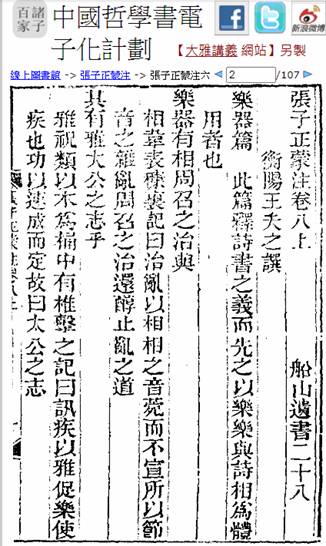 諸子
百家
中國哲學書電
子化計劃
新浪微博
【大雅講義 網站】另製
線上圖書館 -> 張子正蒙注 -> 張子正蒙注六
2
/107
張子正蒙注卷八上
船山遺書二十八
衡陽王夫之譔
樂器篇 此篇釋詩書之義而先之以樂樂與詩相為體
用者也
樂器有相周召之治與
相韋表糠裏記曰治亂以相相之音菀而不宣所以節
音之雜亂周召之治還醇止亂之道
其有雅太公之志乎
雅祝類以木為桶中有椎擊之記曰訊疾以雅促樂使
疾也功以速成而定故曰太公之志